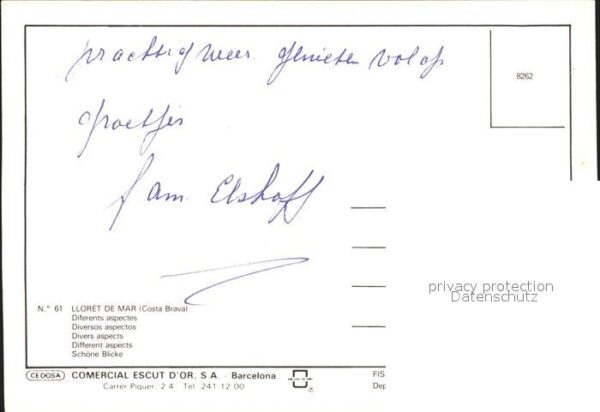 prachtig weer genieten volop
8262
groetjes
fam. Elshoff
privacy protection
Datenschutz
N.° 61 LLORET DE MAR (Costa Brava)
Diferents aspectes
Diversos aspectos
Divers aspects
Different aspects
Schöne Blicke
CEDOSA COMERCIAL ESCUT D'OR. S.A. - Barcelona FIS
Carrer Piquer. 2 4 Tel 241 12 00 Dep